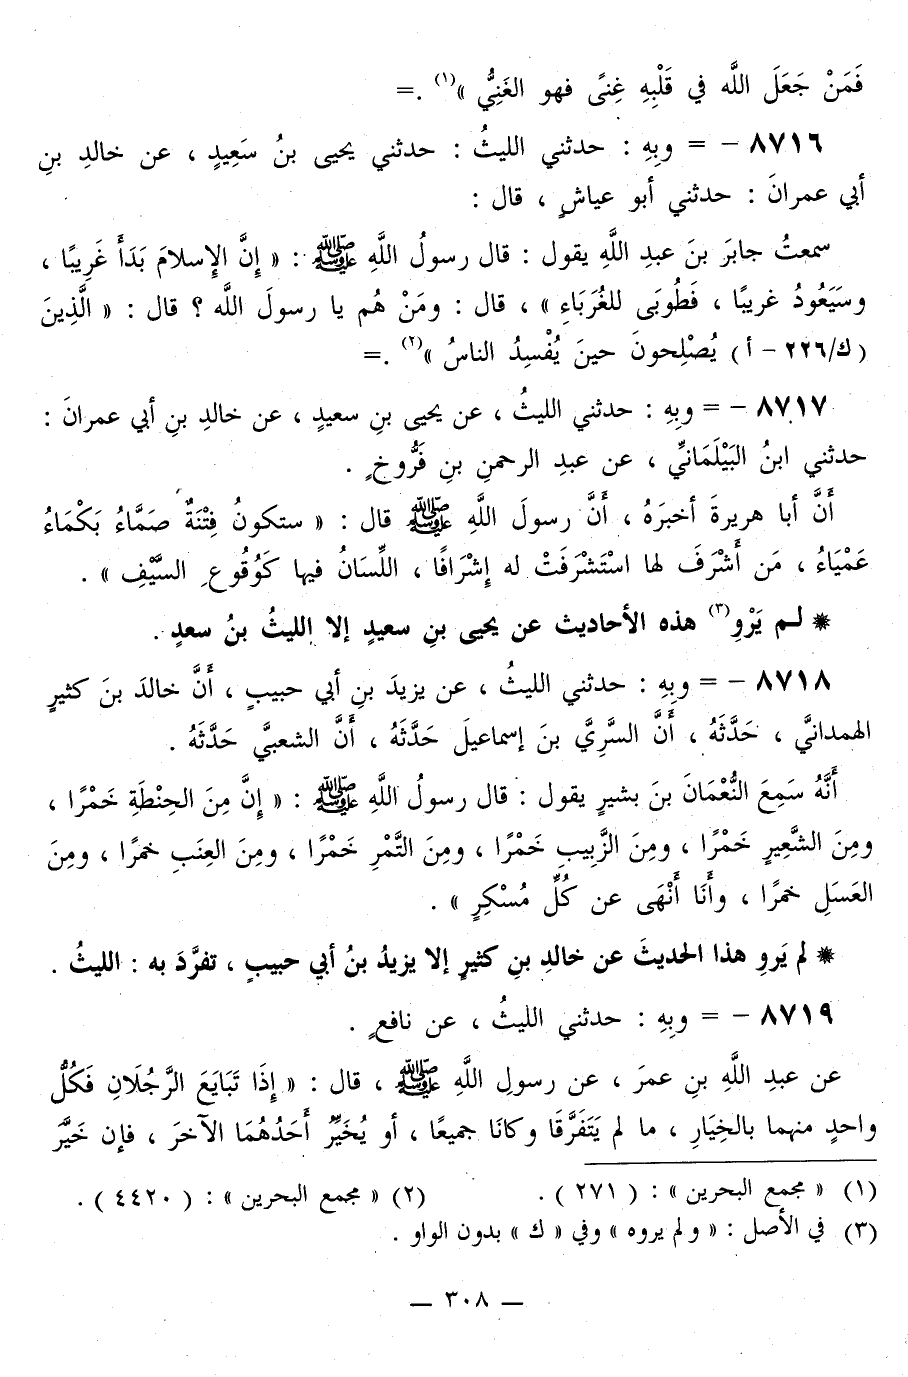 فَمَنْ جَعَلَ اللَّه في قَلْبِهِ غِنًى فهو الغَنِيُّ »(١) .=
٨٧١٦ – = وبِهِ : حدثني الليثُ : حدثني يحيى بنُ سَعِيدٍ ، عن خالدِ بنِ
أبي عمرانَ : حدثني أبو عياشٍ ، قال :
سمعتُ جابرَ بنَ عبدِ اللَّهِ يقول : قال رسولُ اللَّهِ ﷺ : « إِنَّ الإِسلامَ بَدَأَ غَرِيبًا ،
وسَيَعُودُ غريبًا ، فَطُوبَى للغُرَبَاءِ » ، قال : ومَنْ هُم يا رسولَ اللَّه ؟ قال : « الَّذِينَ
(ك/٢٢٦ – أ) يُصْلِحونَ حينَ يُفْسِدُ الناسُ »(٢) .=
٨٧١٧ – = وبِهِ : حدثني الليثُ ، عن يحيى بنِ سعيدٍ ، عن خالدِ بنِ أبي عمرانَ :
حدثني ابنُ البَيْلَمَانيِّ ، عن عبدِ الرحمنِ بنِ فَرُّوخٍ .
أَنَّ أبا هريرةَ أخبرَهُ ، أَنَّ رسولَ اللَّهِ ﷺ قال : « ستكونُ فِتْنَةٌ صَمَّاءُ بَكْمَاءُ
عَمْيَاءُ ، مَن أَشْرَفَ لها استَشْرَفَتْ له إِشْرَافًا ، اللِّسَانُ فيها كَوُقُوعِ السَّيْفِ » .
* لـم يَرْوِ(٣) هذه الأحاديث عن يحيى بنِ سعيدٍ إلا الليثُ بنُ سعدٍ .
٨٧١٨ – = وبِهِ : حدثني الليثُ ، عن يزيدَ بنِ أبي حبيبٍ ، أَنَّ خالدَ بنَ كثيرٍ
الهمدانيَّ ، حَدَّثَهُ ، أَنَّ السَّرِيَّ بنَ إسماعيلَ حَدَّثَهُ ، أَنَّ الشعبيَّ حَدَّثَهُ .
أَنَّهُ سَمِعَ النُّعْمَانَ بنَ بشيرٍ يقول : قال رسولُ اللَّهِ ﷺ : « إِنَّ مِنَ الحِنْطَةِ خَمْرًا ،
ومِنَ الشَّعِيرِ خَمْرًا ، ومِنَ الزَّبِيبِ خَمْرًا ، ومِنَ التَّمْرِ خَمْرًا ، ومِنَ العِنَبِ خمرًا ، ومِنَ
العَسَلِ خمرًا ، وأَنَا أَنْهَى عن كُلِّ مُسْكِرٍ » .
* لم يَروِ هذا الحديثَ عن خالدِ بنِ كثيرٍ إلا يزيدُ بنُ أبي حبيبٍ ، تفرَّدَ به : الليثُ .
٨٧١٩ – = وبِهِ : حدثني الليثُ ، عن نافعٍ .
عن عبدِ اللَّهِ بنِ عمرَ ، عن رسولِ اللَّهِ ﷺ ، قال : « إِذَا تَبَايَعَ الرَّجُلَانِ فَكُلُّ
واحدٍ منهما بالخِيَارِ ، ما لم يَتَفَرَّقَا وكانَا جميعًا ، أو يُخَيِّرُ أَحَدُهُمَا الآخرَ ، فإن خَيَّرَ
(١) « مجمع البحرين » : ( ٢٧١ ) .
(٢) « مجمع البحرين » : ( ٤٤٢٠ ) .
(٣) في الأصل : « ولم يروه » وفي « ك » بدون الواو .
— ٣٠٨ —